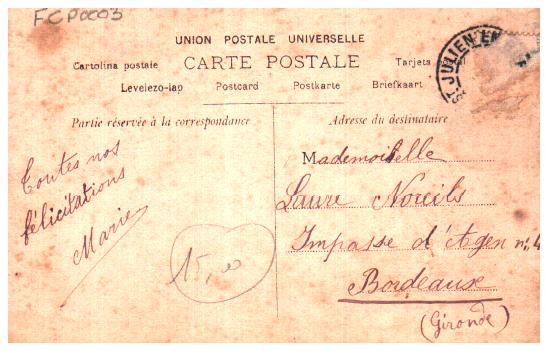 FCP0003
UNION POSTALE UNIVERSELLE
Cartolina postale CARTE POSTALE Tarjeta
Levelezo-lap Postcard Postkarte Briefkaart
ST-JULIEN-EN
Partie réservée à la correspondance
Adresse du destinataire
Toutes nos
félicitations
Marie
15,00
Mademoiselle
Laure
Impasse d'Agen n: 4
Bordeaux
(Gironde)